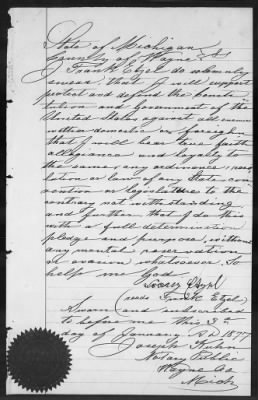 State of Michigan
County of Wayne SS
I Frank Etzel do solemnly
swear that I will support
protect and defend the Consti
tution and Government of the
United States against all enemies
wither domestic or foreign
that I will bear true faith
allegiance and loyalty to
the same, any ordinance, reso
lution or law of any State con
vention or legislature to the
contrary not withstanding
and further that I do this
with a full determination
pledge and purpose, without
any mental reservation
or evasion whatsoever. So
help me God
Frank Etzel
Sworn and subscribed
to before me this 3
day of January A D 1877
Joseph Kuhn
Notary Public
Wayne Co
Mich